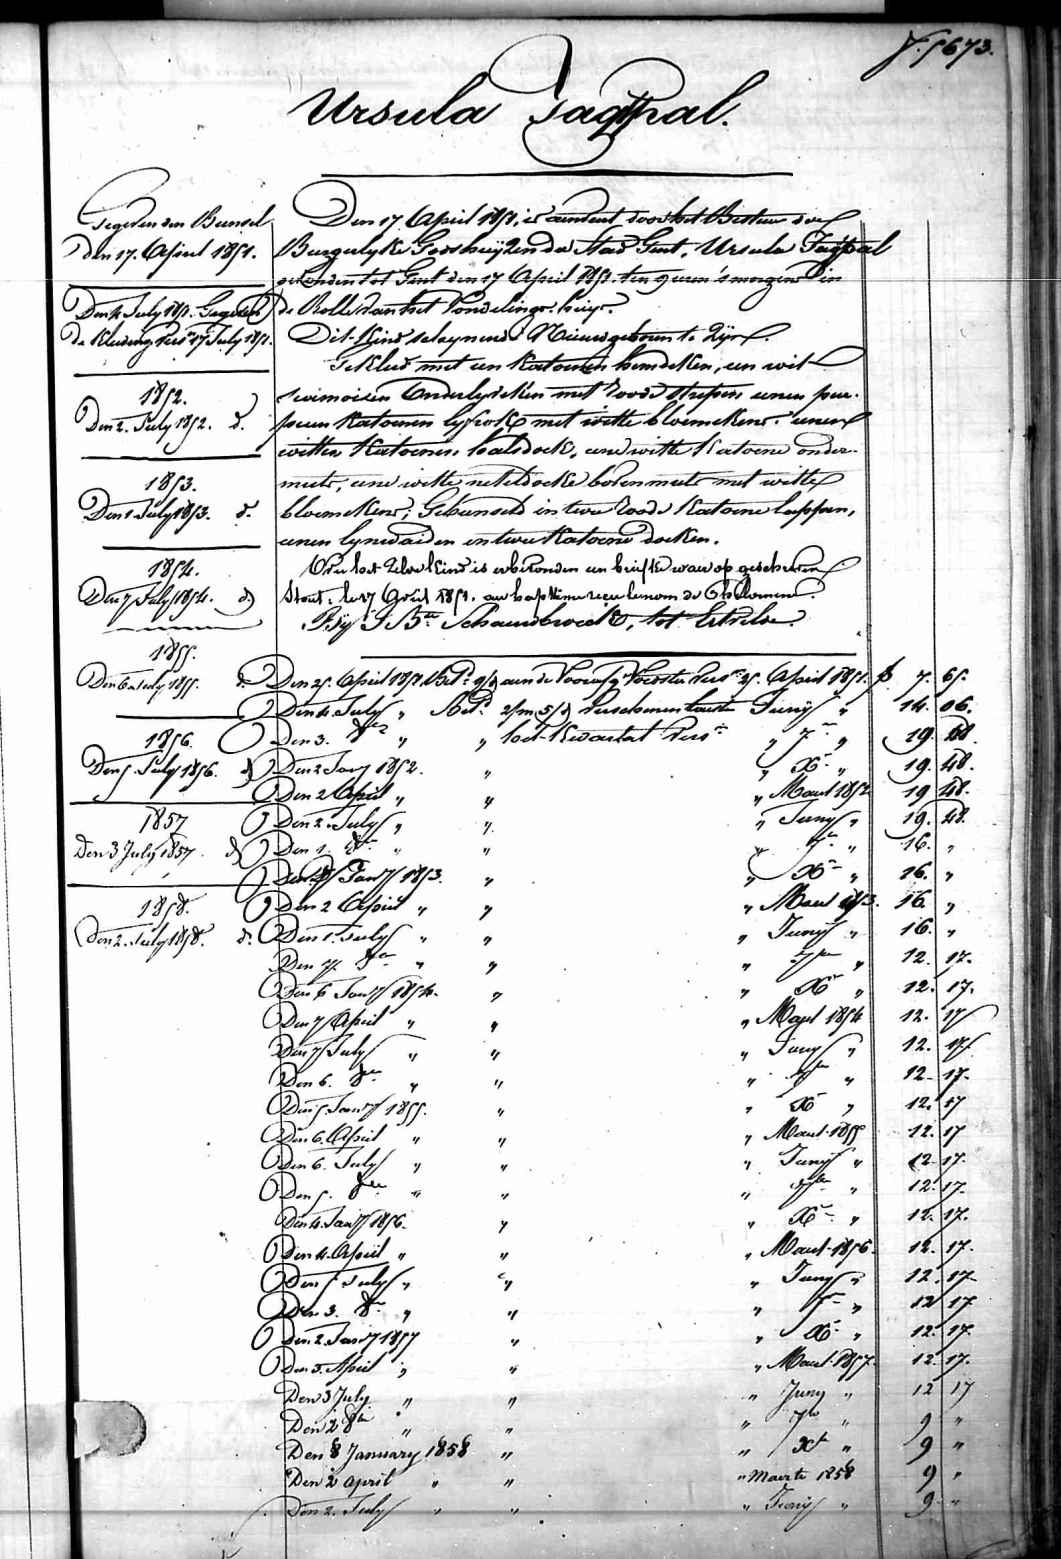 f. 1673.
Ursula Jagtpal.
Gegeven den Bunsel
den 17. April 1851.
Den 4 July 1851. Gegeven
de Kleeding Pers 17 July 1851.
1852.
Den 2. July 1852. d.
1853.
Den 1 July 1853. d.
1854.
Den 7 July 1854. d
1855.
Den 6 July 1855. d.
1856.
Den 5. July 1856. d
1857
den 3 July 1857 d
1858.
den 2. July 1858. d.
Den 17. April 1851, is door het Bestuer der
Burgerlyke Godshuijzen der Stad Gent, Ursula
gevonden tot Gent den 17 April 1851. ten 9 uren 's morgens in
de Rolle van het Vondelings-huys.
Dit Kind schynende Nieuwgeboren te Zyn.
Gekleed met een Katoenen hemdeken, een wit
met roode strepen eenen pur-
peren Katoenen lyfrok met witte bloemekens. eenen
witten Katoenen halsdoek, eene witte Katoene onder-
muts, eene witte boven muts met witte
bloemekens; Gebunseld in twee roode Katoene lappen,
eenen in twee Katoene doeken.
Over het Zelve Kind is een briefke waer op geschreven
le 17 1851. au baptême le nom de
Bij tot
Den 25. April 1851. aen de Voorsz Voedster Pers 25. April 1851. f. 7. 65.
Den 4. July " 2/m 5/d Juny " 14. 06.
Den 3. 8re " " het Kwartael Pers " 7re " 19. 48.
Den 2 Jany 1852. " " Xr " 19. 48.
Den 2 April " " " Maert 1852 19 48.
Den 2. July " " " Juny " 19. 48.
Den 1. 8re " " " 7re " 16. "
Jany 1853. " " Xr " 16. "
Den 2 April " " " Maert 1853. 16 "
Den 1. July " " " Juny " 16. "
Den 7. 8re " " " 7re " 12. 17.
Den 6 Jany 1854. " " Xr " 12. 17.
Den 7 April " " " Maert 1854 12. 17
Den 7 July " " " Juny " 12. 17
Den 6. 8re " " " 7re " 12. 17.
Den 5. Jany 1855. " " Xr " 12. 17
Den 6. April " " " Maert 1855 12. 17
Den 6. July " " " Juny " 12. 17.
Den 5. 8re " " " 7re " 12. 17.
Den 4. Jany 1856. " " Xr " 12. 17.
Den 4. April " " " Maert 1856. 12. 17.
Den 5 July " " " Juny " 12. 17
Den 3. 8re " " " 7re " 12 17
Den 2. Jany 1857 " " Xr " 12. 17.
Den 3. April " " " Maert 1857. 12. 17.
Den 3 July " " " Juny " 12 17
Den 2 8re " " " 7re " 9 "
Den 8 January 1858 " " Xr " 9 "
Den 2 april " " " Maerte 1858 9 "
Den 2. July " " " Juny " 9 "